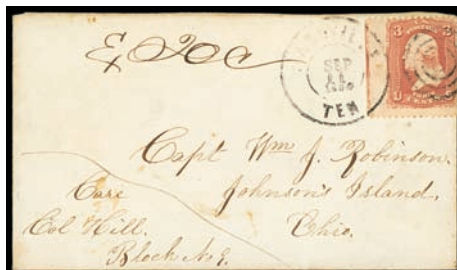 & 20c
NASHVILLE
SEP
11
TEN
3 3
U S
Capt Wm J. Robinson.
Johnson's Island,
Ohio.
Care
Col Hill.
Block No 9.